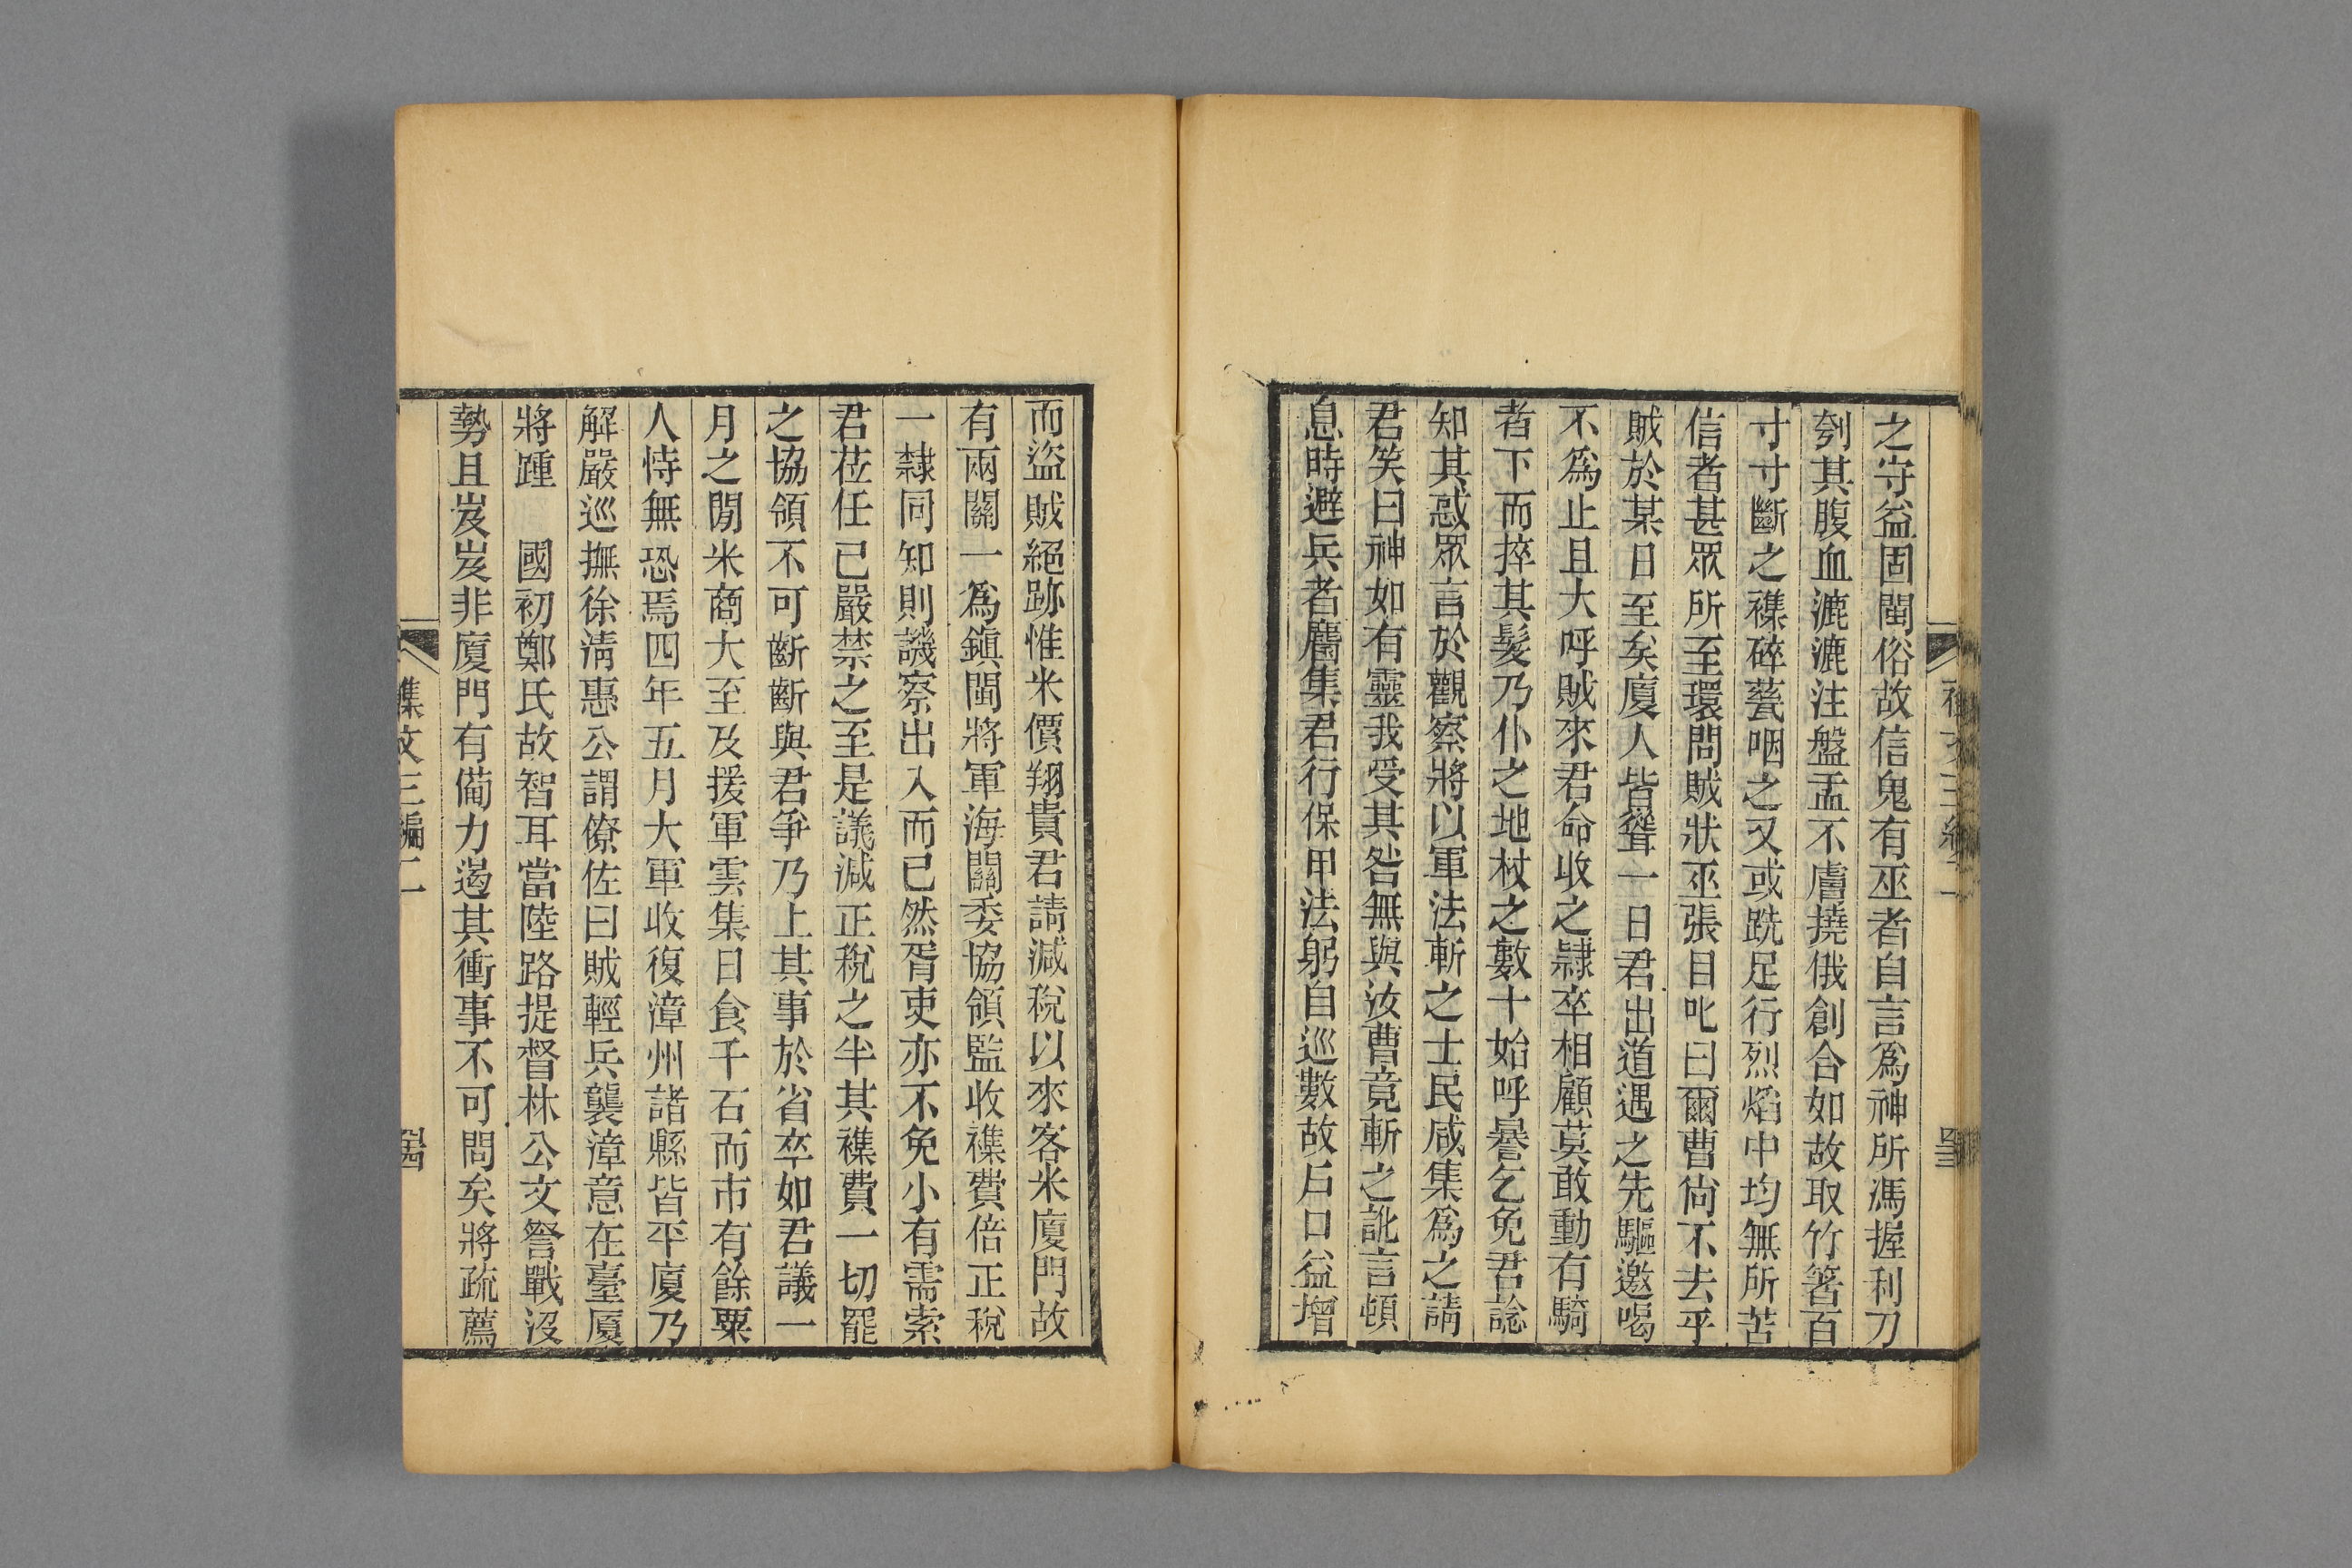 之守益固閩俗故信鬼有巫者自言爲神所馮握利刀
刳其腹血漉漉注盤盂不膚撓俄創合如故取竹箸百
寸寸斷之襍碎甆咽之又或跣足行烈焰中均無所苦
信者甚眾所至環問賊狀巫張目叱曰爾曹尙不去乎
賊於某日至矣廈人皆聳一日君出道遇之先驅邀喝
不爲止且大呼賊來君命收之隸卒相顧莫敢動有騎
者下而捽其髮乃仆之地杖之數十始呼暴乞免君諗
知其惑眾言於觀察將以軍法斬之士民咸集爲之請
君笑曰神如有靈我受其咎無與汝曹竟斬之訛言頓
息時避兵者麕集君行保甲法躬自巡數故戶口益增
而盜賊絕跡惟米價翔貴君請減稅以來客米廈門故
有兩關一爲鎭閩將軍海關委協領監收襍費倍正稅
一隸同知則譏察出入而已然胥吏亦不免小有需索
君莅任已嚴禁之至是議減正稅之半其襍費一切罷
之協領不可斷斷與君爭乃上其事於省卒如君議一
月之閒米商大至及援軍雲集日食千石而市有餘粟
人恃無恐焉四年五月大軍收復漳州諸縣皆平廈乃
解嚴巡撫徐淸惠公謂僚佐曰賊輕兵襲漳意在臺厦
將踵 國初鄭氏故智耳當陸路提督林公文詧戰沒
勢且岌岌非廈門有備力遏其衝事不可問矣將疏薦
集文三編二